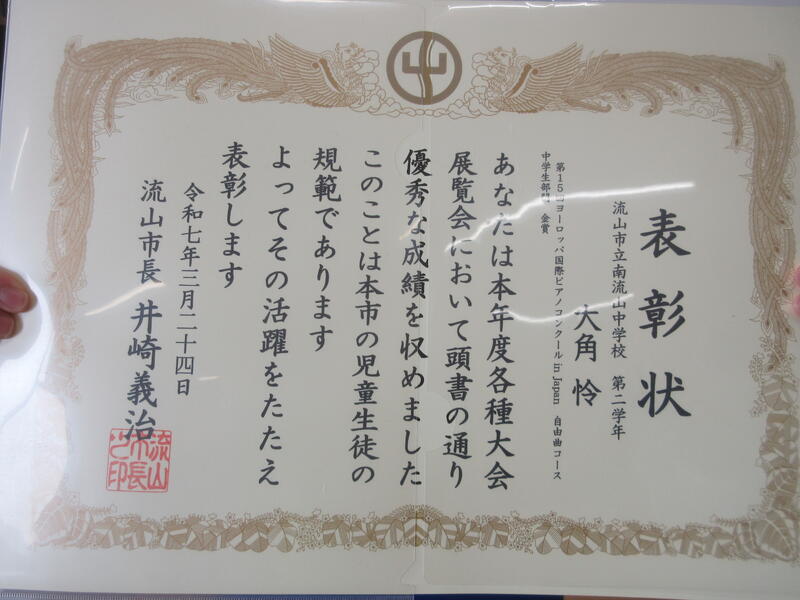 表彰状
流山市立南流山中学校 第二学年
大角 怜
第15回ヨーロッパ国際ピアノコンクール in Japan 自由曲コース
中学生部門 金賞
あなたは本年度各種大会
展覧会において頭書の通り
優秀な成績を収めました
このことは本市の児童生徒の
規範であります
よってその活躍をたたえ
表彰します
令和七年三月二十四日
流山市長 井崎義治
流山市長之印